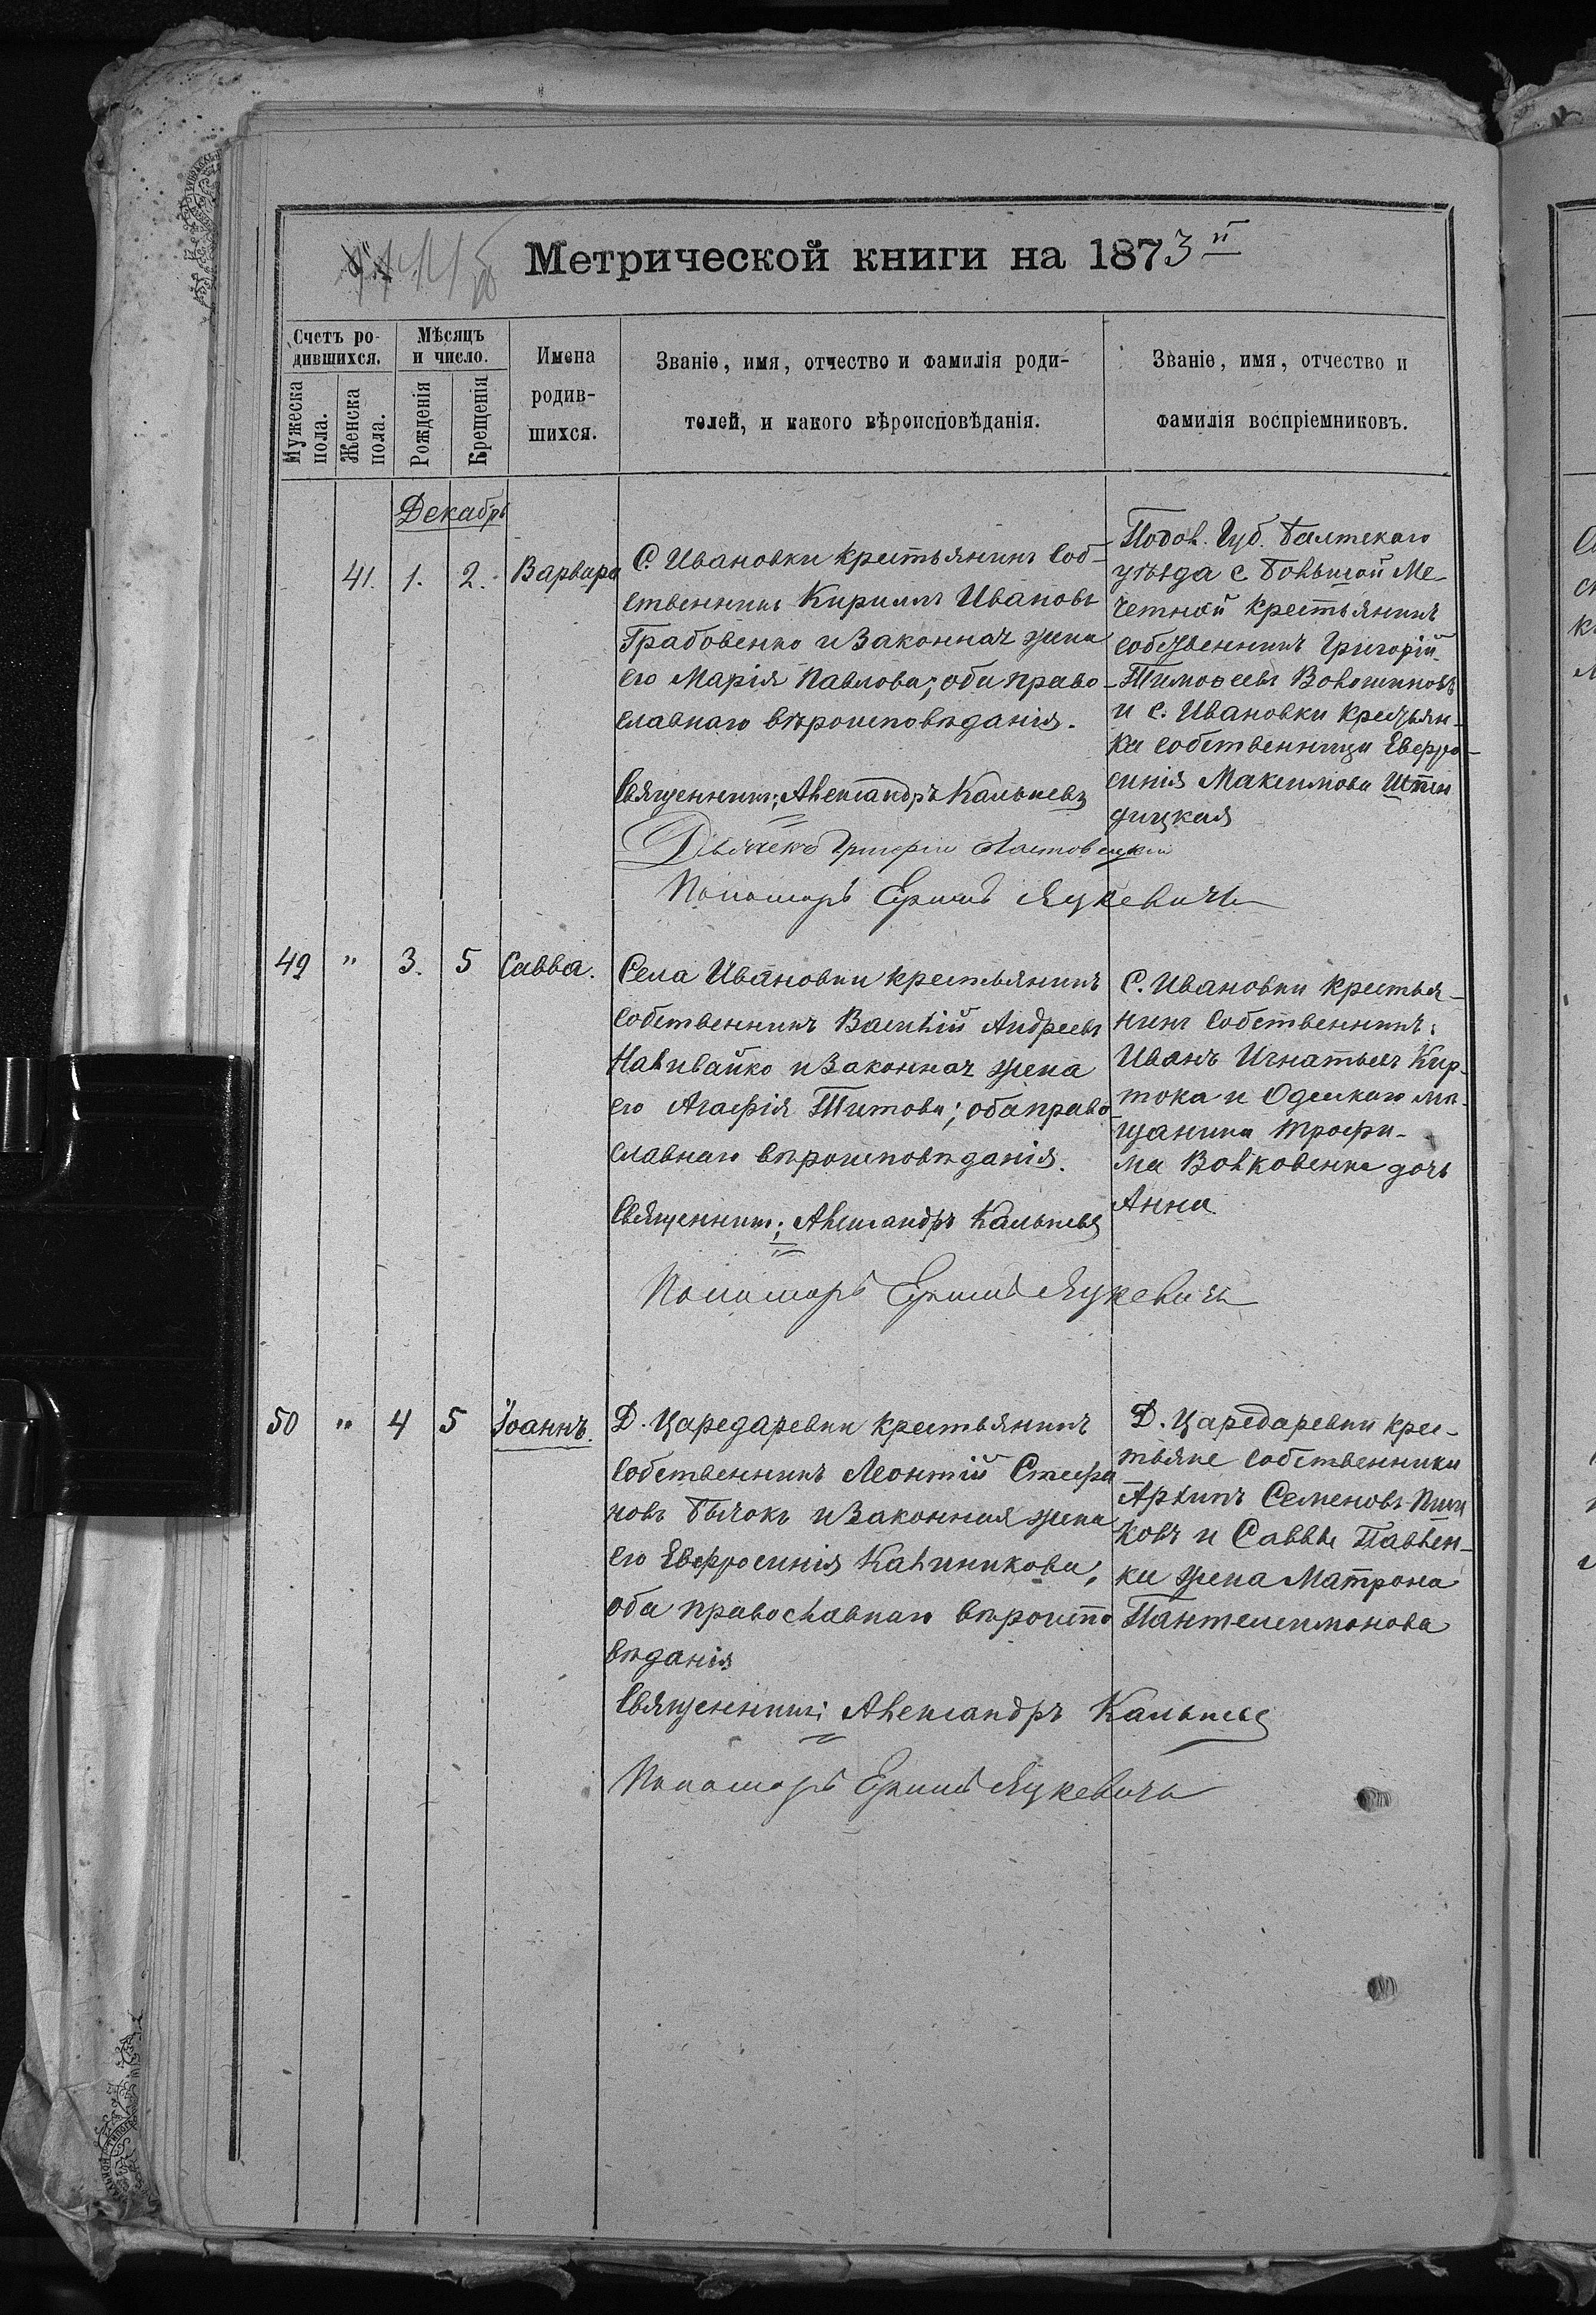 Метрической книги на 1873й
Счетъ ро-
дившихся.
Мужеска
пола.
Женска
пола.
Мѣсяцъ
и число.
Рожденія
Крещенія
Имена
родив-
шихся.
Званіе, имя, отчество и фамилія роди-
телей, и какого вѣроисповѣданія.
Званіе, имя, отчество и
фамилія воспріемниковъ.
Декабрь
41. 1. 2. Варвара
С. Ивановки крестьянинъ соб-
ственникъ Кириллъ Ивановъ
Грабовенко и законная жена
его Марія Павлова; оба право-
славнаго вѣроисповѣданія.
Священникъ; Александръ Кальневъ
Дьячекъ Григорій
Пономарь Ефимъ Яцкевичъ
Подол. Губ. Балтскаго
уѣзда с Большой Ме-
четной крестьянинъ
собственникъ Григорій
Тимоѳеевъ Волошиновъ
и с. Ивановки крестьян-
ка собственница Евфро-
синія Максимова
49 " 3. 5 Савва.
Села Ивановки крестьянинъ
собственникъ Василій Андреевъ
Наливайко и законная жена
его Агафія Титова; оба право
славнаго вѣроисповѣданія.
Священникъ; Александръ Кальневъ
Пономарь Ефимъ Яцкевичъ
С. Ивановки крестья-
нинъ собственникъ:
Иванъ Игнатьевъ Кир-
тока и Одесскаго мѣ-
щанина Трофи-
ма Волковенка дочь
Анна
50 " 4 5 Іоаннъ.
Д. Цареда­ревки крестьянинъ
собственникъ Леонтій Стефа
новъ Бычокъ и законная жена
его Евфросинія Калиникова;
оба православнаго вѣроиспо
вѣданія
Священникъ; Александръ Кальневъ
Пономарь Ефимъ Яцкевичъ
Д. Царедаревки крес-
тьяне собственники
Архипъ Семеновъ
ковъ и Саввы Павлен-
ки жена Матрона
Пантелеимонова